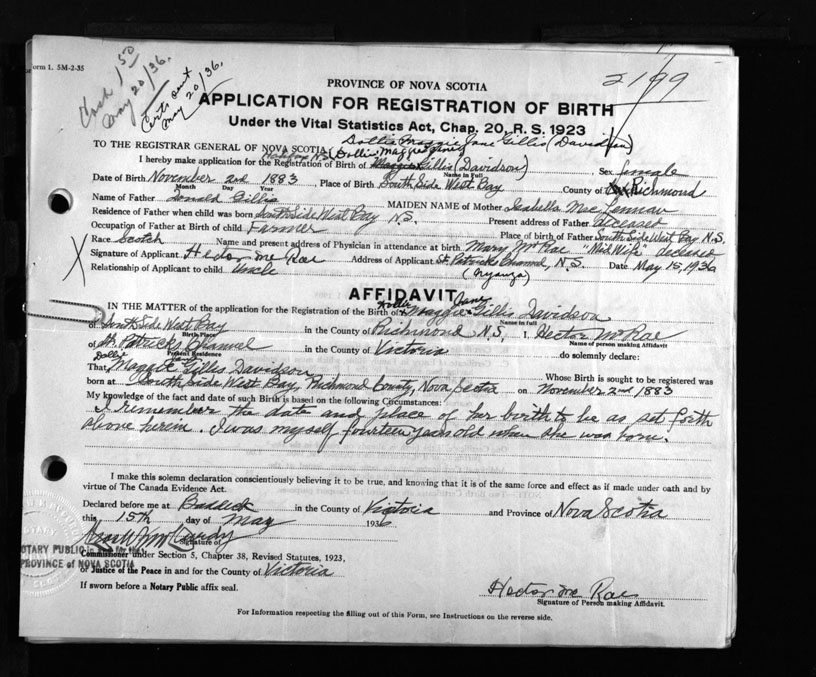 orm 1. 5M-2-35
Cash 1 50
May 20/36.
Certs sent
May 20/36.
2199
PROVINCE OF NOVA SCOTIA
APPLICATION FOR REGISTRATION OF BIRTH
Under the Vital Statistics Act, Chap. 20, R. S. 1923
Dollie Maggie Jane Gillis (Davidson)
TO THE REGISTRAR GENERAL OF NOVA SCOTIA
Dollie Maggie Jane
I hereby make application for the Registration of Birth of Gillis (Davidson) Sex female
Name in Full
Date of Birth November 2nd 1883 Place of Birth South Side West Bay County of Richmond
Month Day Year
Name of Father Donald Gillis MAIDEN NAME of Mother Isabella Mac Lennan
Residence of Father when child was born South Side West Bay N.S. Present address of Father deceased
Occupation of Father at Birth of child Farmer Place of birth of Father South Side West Bay N.S.
Race Scotch Name and present address of Physician in attendance at birth Mary McRae "Mid Wife" deceased
Signature of Applicant Hector Mc Rae Address of Applicant St. Patricks Channel, N.S. Date May 15, 1936
Relationship of Applicant to child Uncle (Nyanza)
AFFIDAVIT
Dollie Jane
IN THE MATTER of the application for the Registration of Birth of Maggie Gillis Davidson
Name in full
of South Side West Bay in the County of Richmond N.S, I, Hector McRae
Birth Place Name of person making Affidavit
of St. Patricks Channel in the County of Victoria do solemnly declare:
Present Residence
Dollie Jane
That Maggie Gillis Davidson Whose Birth is sought to be registered was
born at South Side West Bay, Richmond County, Nova Scotia on November 2nd 1883
My knowledge of the fact and date of such Birth is based on the following Circumstances:
I remember the date and place of her birth to be as set forth
above herein. I was myself fourteen years old when she was born.
I make this solemn declaration conscientiously believing it to be true, and knowing that it is of the same force and effect as if made under oath and by
virtue of The Canada Evidence Act.
Declared before me at Baddeck in the County of Victoria and Province of Nova Scotia
this 15th day of May 1936
Signature of
NOTARY PUBLIC in and for the
PROVINCE of NOVA SCOTIA
Commissioner under Section 5, Chapter 38, Revised Statutes, 1923,
or Justice of the Peace in and for the County of Victoria
If sworn before a Notary Public affix seal.
Hector Mc Rae
Signature of Person making Affidavit.
For Information respecting the filling out of this Form, see Instructions on the reverse side.